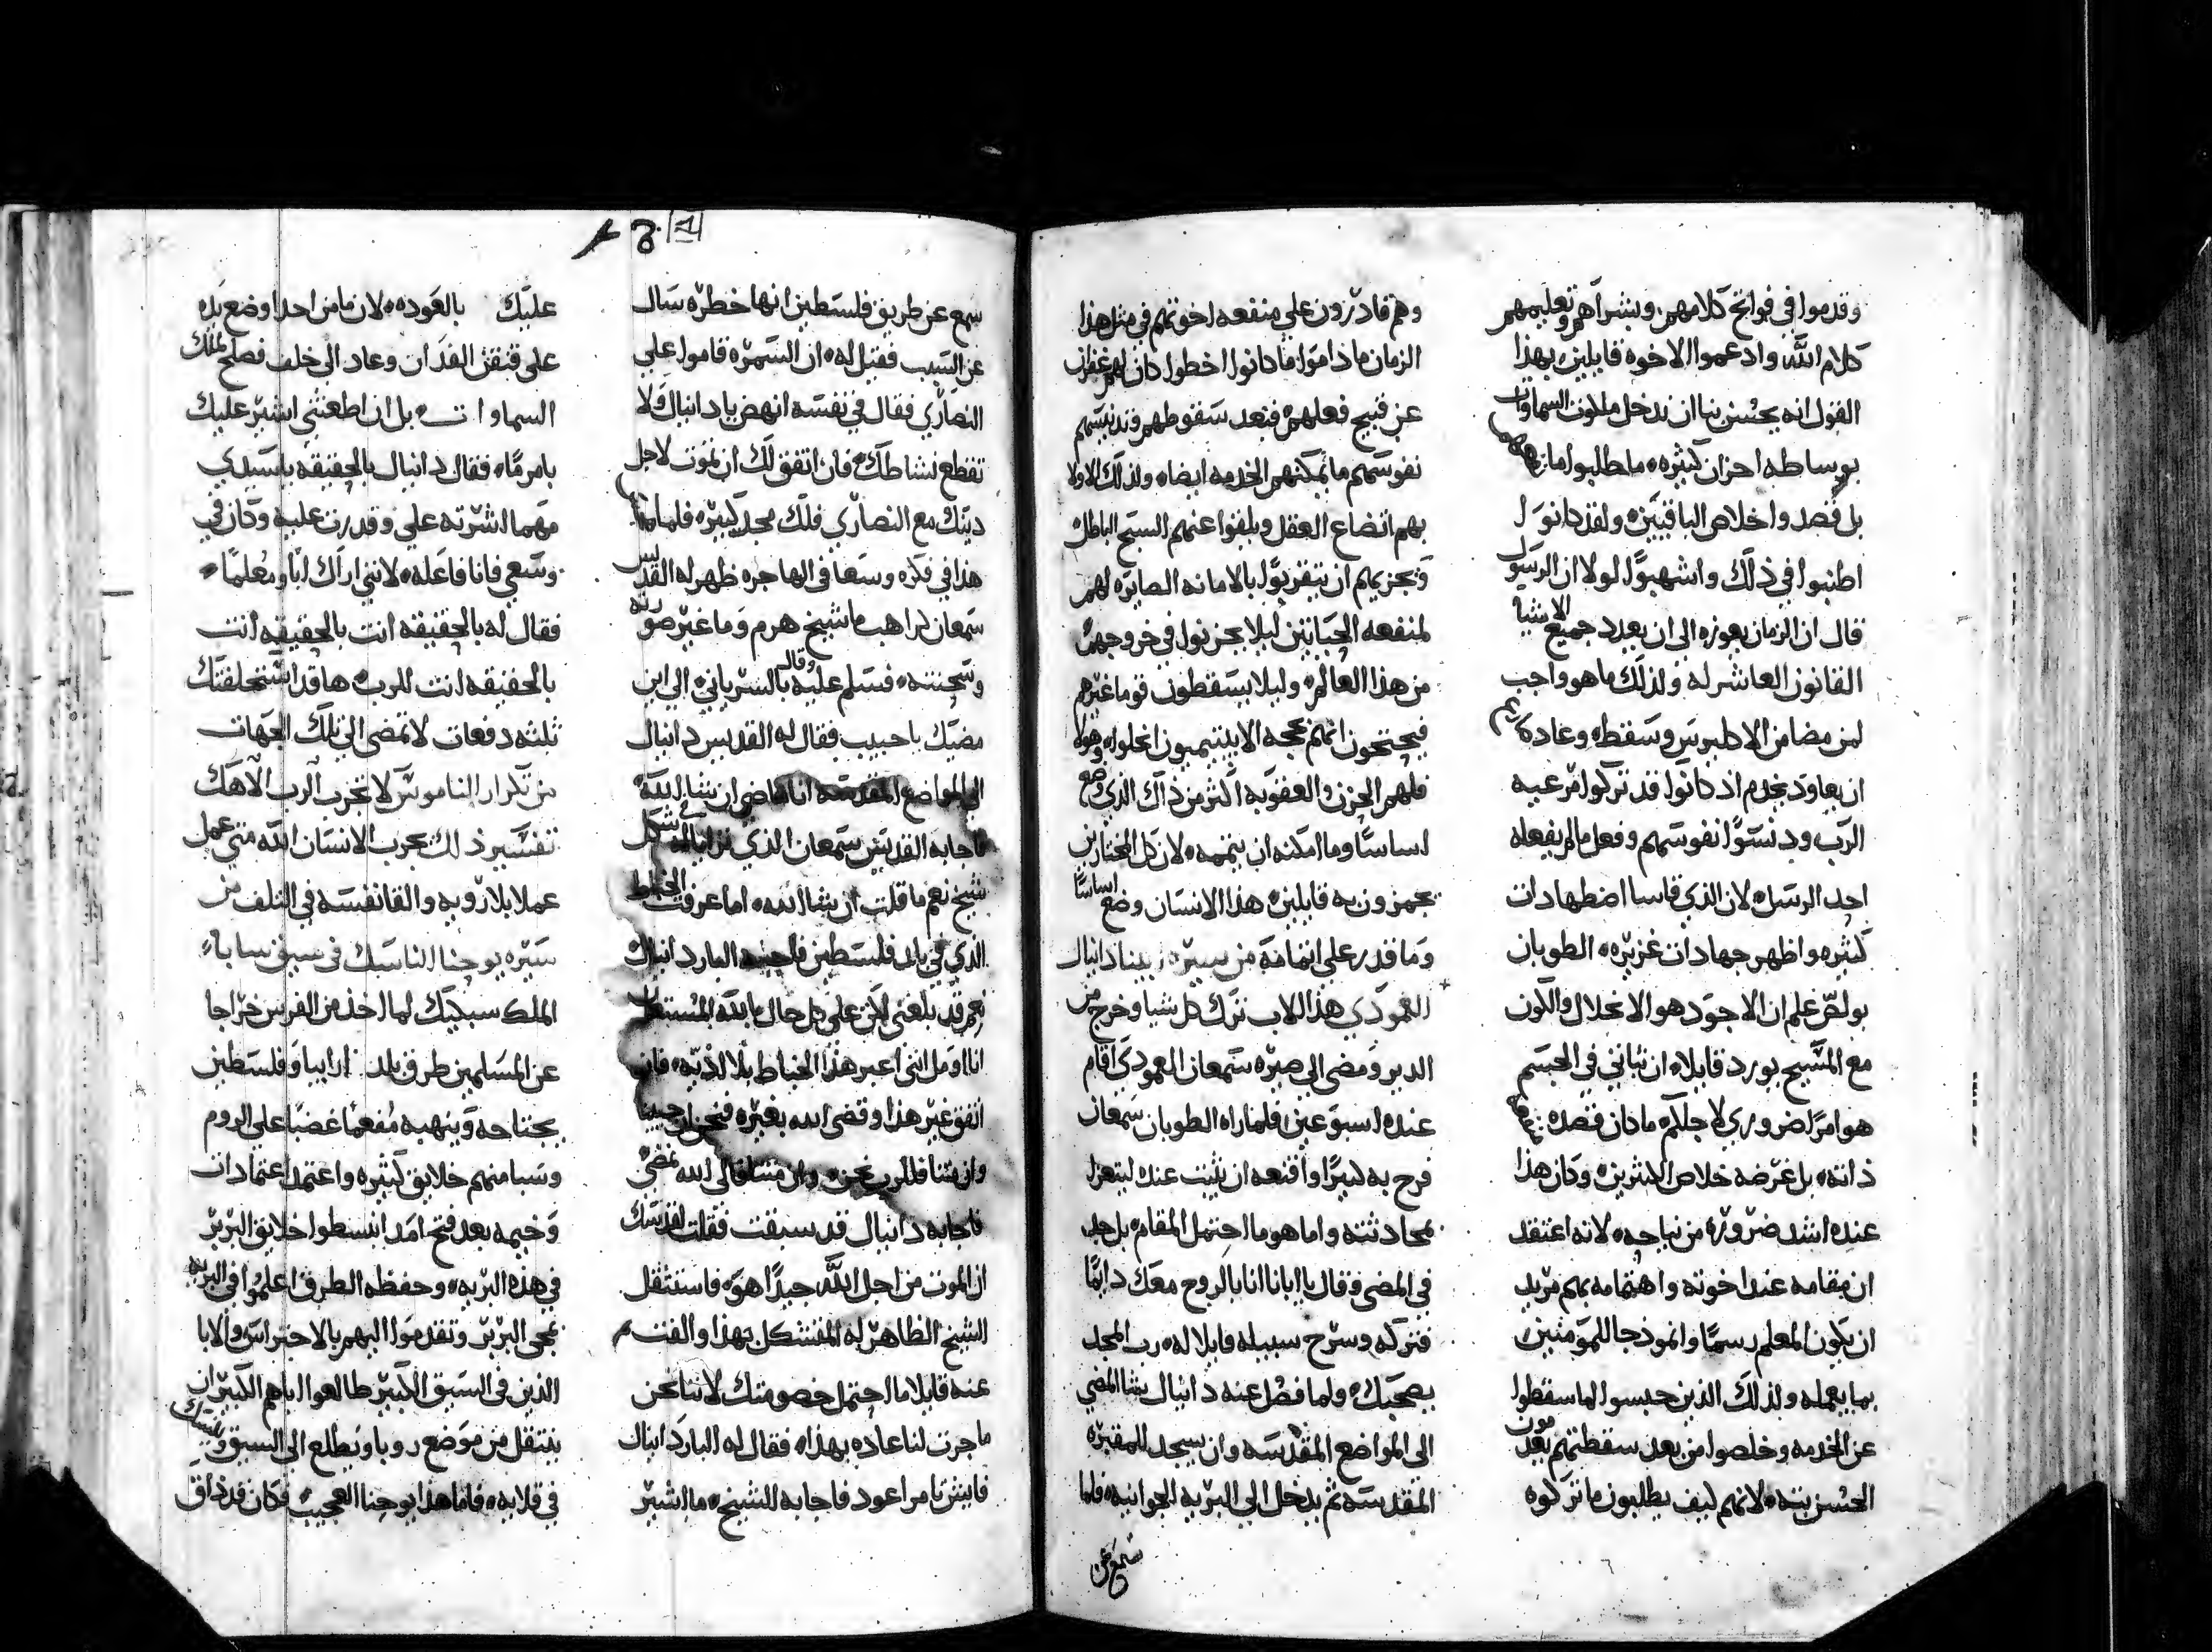 وقدموا في فواتح كلامهم وبشراهم وتعليمهم
كلام الله وادعموا الاخوه قايلين بهذا
القول انه يحسن بنا ان ندخل ملكوت السماوات
بوساطه احزان كثيره ما طلبوا ما
بل قصدوا خلاص الباقيين ولقد كانوا
اطنبوا في ذلك واشهبوا لولا ان الرسول
قال ان الزمان يعوزه الى ان يعدد جميع الاشيا
القانون العاشر له ولذلك ما هو واجب
لمن مضا من الاكليروس وسقط وعاد
ان يعاود يخدم اذ كانوا قد تركوا مرعيه
الرب ودنسوا نفوسهم وفعل ما لم يفعله
احد الرسل لان الذي قاسا اضطهادات
كثيره واظهر جهادات غزيره الطوبان
بولص علم ان الاجود هو الانحلال والكون
مع المسيح يورد قايلا ان ثباتي في الجسم
هو امرا ضروري لاجلكم ما كان قصده
ذاته بل غرضه خلاص الكثرين وكان هذا
عنده اشد ضروره من نياحه لانه اعتقد
ان مقامه عند اخوته واهتمامه بهم مزيد
ان يكون المعلم رسما وانموذجا للمومنين
بما يعمله ولذلك الذين حبسوا لما سقطوا
عن الخدمه وخلصوا من بعد سقطتهم يعدمون
الحسن بته لانهم كيف يطلبون ما تركوه
وهم قادرون على منفعه اخوتهم في مثل هذا
الزمان ماذاموا ما كانوا اخطوا كان لهم غفران
عن قبيح فعلهم فبعد سقوطهم وتدنيسهم
نفوسهم ما يمكنهم الخدمه ايضا ولذلك الاولا
بهم اتضاع العقل ويلقوا عنهم السبح الباطل
ويجزيهم ان يتقربوا بالامانه الصايره لهم
لمنفعه الجبانين ليلا يحزنوا في خروجهم
من هذا العالم وليلا يسقطون قوما غيرهم
فيحتجون انهم بحجه الايبتيميون انحلوا وهولا
فلهم الحزن والعقوبه اكثر من ذاك الذي وضع
اساسا وما امكنه ان يتممه لان كل المجتازين
يهزون به قايلين هذا الانسان وضع اساسا
وما قدر على اتمامه من سيره ابينا دانيال
العمودي هذا الاب ترك كل شيا وخرج من
الدير ومضى الى صيره سمعان العمودي اقام
عنده اسبوعين فلما راه الطوبان سمعان
فرح به كبيرا واقنعه ان يثبت عنده ليتعزا
بمحادثته واما هو ما احتمل المقام بل جد
في المضي وقال يا ابانا انا بالروح معك دايما
فتركه وسرح سبيله قايلا له رب المجد
يصحبك ولما فصل عنه دانيال يشا المضي
الى المواضع المقدسه وان يسجد للمقبره
المقدسه ثم يدخل الى البريه الجوانيه فلما
سمع عن
سمع عن طريق فلسطين انها خطره سال
عن السبب فقيل له ان السمره قاموا على
النصارى فقال في نفسه انهض يا دانيال ولا
تقطع نشاطك فان اتفق لك ان تموت لاجل
دينك مع النصارى فلك مجد كبيره فلما
هذا في فكره وسعا في الهاجره ظهر له القديس
سمعان كراهب ما شيخ هرم وما غير صورته
وسحنته فسلم عليه وقال بالسرياني الى اين
مضيك يا حبيب فقال له القديس دانيال
الى المواضع المقدسه انا ماضي ان شا الله
فاجابه القديس سمعان الذي تزايا له بشكل
شيخ نعم ما قلت ان شا الله اما عرفت الخباط
الذي في بلد فلسطين فاجابه البار دانيال
نعم قد بلغني لكن على كل حال بالله المستعان
انا اومل انني اعبر هذا الخباط بلا اذيه فان
اتفق غير هذا وقضى الله بغيره فنحن ان حيينا
وان متنا فللرب نحن وان متنا فالى الله نمضي
فاجابه دانيال قد سبقت فقلت لقدسك
ان الموت من اجل الله جيدا هو فاستثقل
الشيخ الظاهر له المتشكل بهذا والفت
عنه قايلا ما احتمل خصومتك لاننا نحن
ما جرت لنا عاده بهذا فقال له البار دانيال
فايش تامر اعود فاجابه الشيخ ما اشير
عليك بالعوده لان ما من احد اوضع يده
على قنقش الفدان وعاد الى خلف فصلح لملك
السماوات بل ان اطعتني اشير عليك
بامر ما فقال دانيال بالحقيقه يا سيدي
مهما اشرته علي وقدرت عليه وكان في
وسعي فانا فاعله لانني اراك ابا ومعلما
فقال له بالحقيقه انت بالحقيقه انت
بالحقيقه انت للرب ها قد استحلفتك
ثلثه دفعات لا تمضى الى تلك الجهات
من تكرار الناموس لا تجرب الرب الاهك
تفسير ذلك يجرب الانسان الله متى عمل
عملا بلا رويه والقا نفسه في التلف من
سيره يوحنا الناسك في سيق سابا
الملك سبكيك لما اخذ من الفرس خراجا
عن المسلمين طرق بلد ارابيا وفلسطين
يجتاحه وينهبه مفعما غضبا على الروم
وسبا منهم خلايق كثيره واعتمد اعتمادات
وخيمه بعد فتح امد انبسطوا خلايق البربر
في هذه البريه وحفظه الطرق اعلموا في البريه
بمجى البربر وتقدموا اليهم بالاحتراس والابا
الذين في السيق الكبير طالعوا اباهم الكبير ان
ينتقل من موضع روبا ويطلع الى السيق ويتنسك
في قلايه فاما هذا يوحنا العجيب فكان قد ذاق